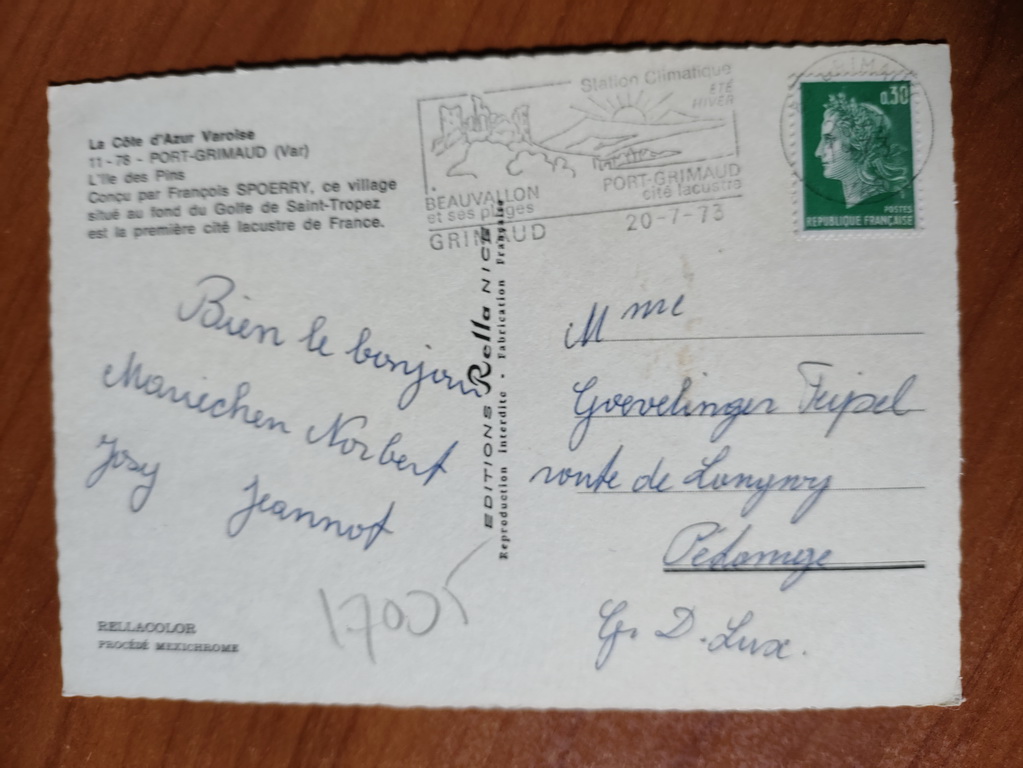 La Côte d'Azur Varoise
11-78 - PORT-GRIMAUD (Var)
L'Ile des Pins
Conçu par François SPOERRY, ce village
situé au fond du Golfe de Saint-Tropez
est la première cité lacustre de France.
Station Climatique
ETE
HIVER
BEAUVALLON
et ses plages
GRIMAUD
PORT-GRIMAUD
cité lacustre
20-7-73
0,30
POSTES
REPUBLIQUE FRANÇAISE
Bien le bonjour
Mariechen Norbert
Josy Jeannot
EDITIONS Rella NICE
Reproduction interdite • Fabrication Française
Mme
Goevelinger Feipel
route de Longwy
Pédange
Gr. D. Lux.
RELLACOLOR
PROCÉDÉ MEXICHROME